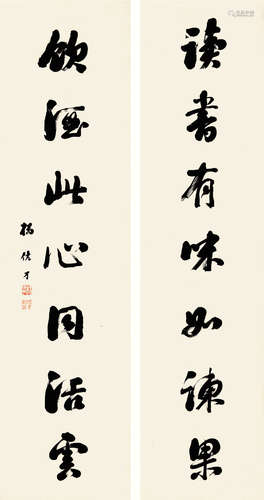 讀書有味如諫果
飲酒此心同活雲
楊